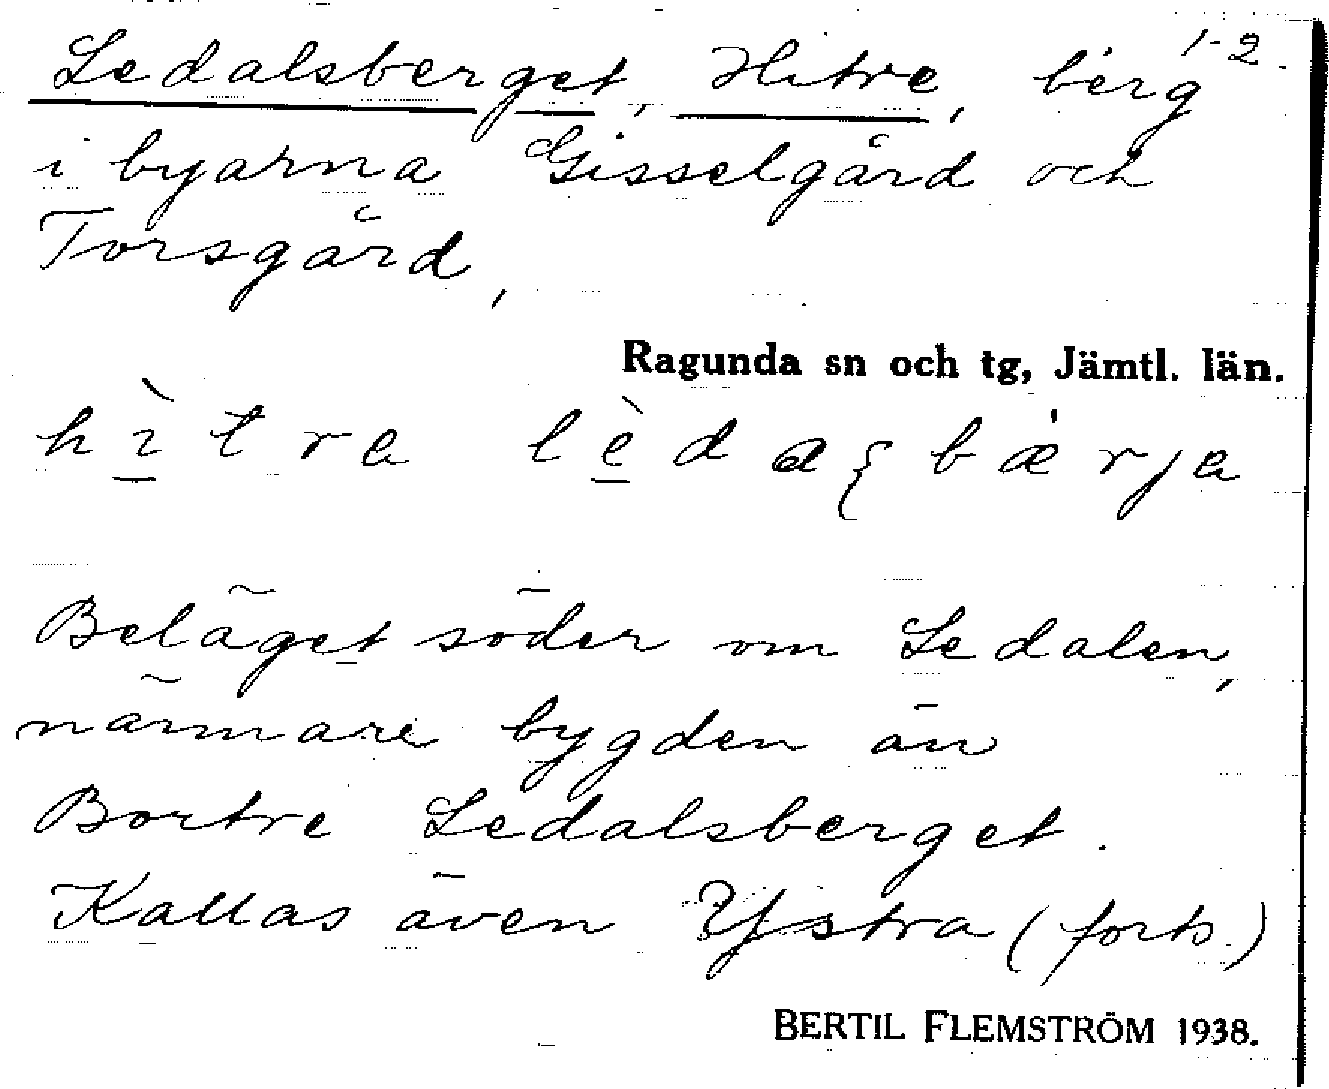 1-2.
Ledalsberget, Hitre, berg
i byarna Gisselgård och
Torsgård,
Ragunda sn och tg, Jämtl. län.
hìtra lèdaʃbærja
Beläget söder om Ledalen,
närmare bygden än
Bortre Ledalsberget.
Kallas även Ystra (forts.)
BERTIL FLEMSTRÖM 1938.